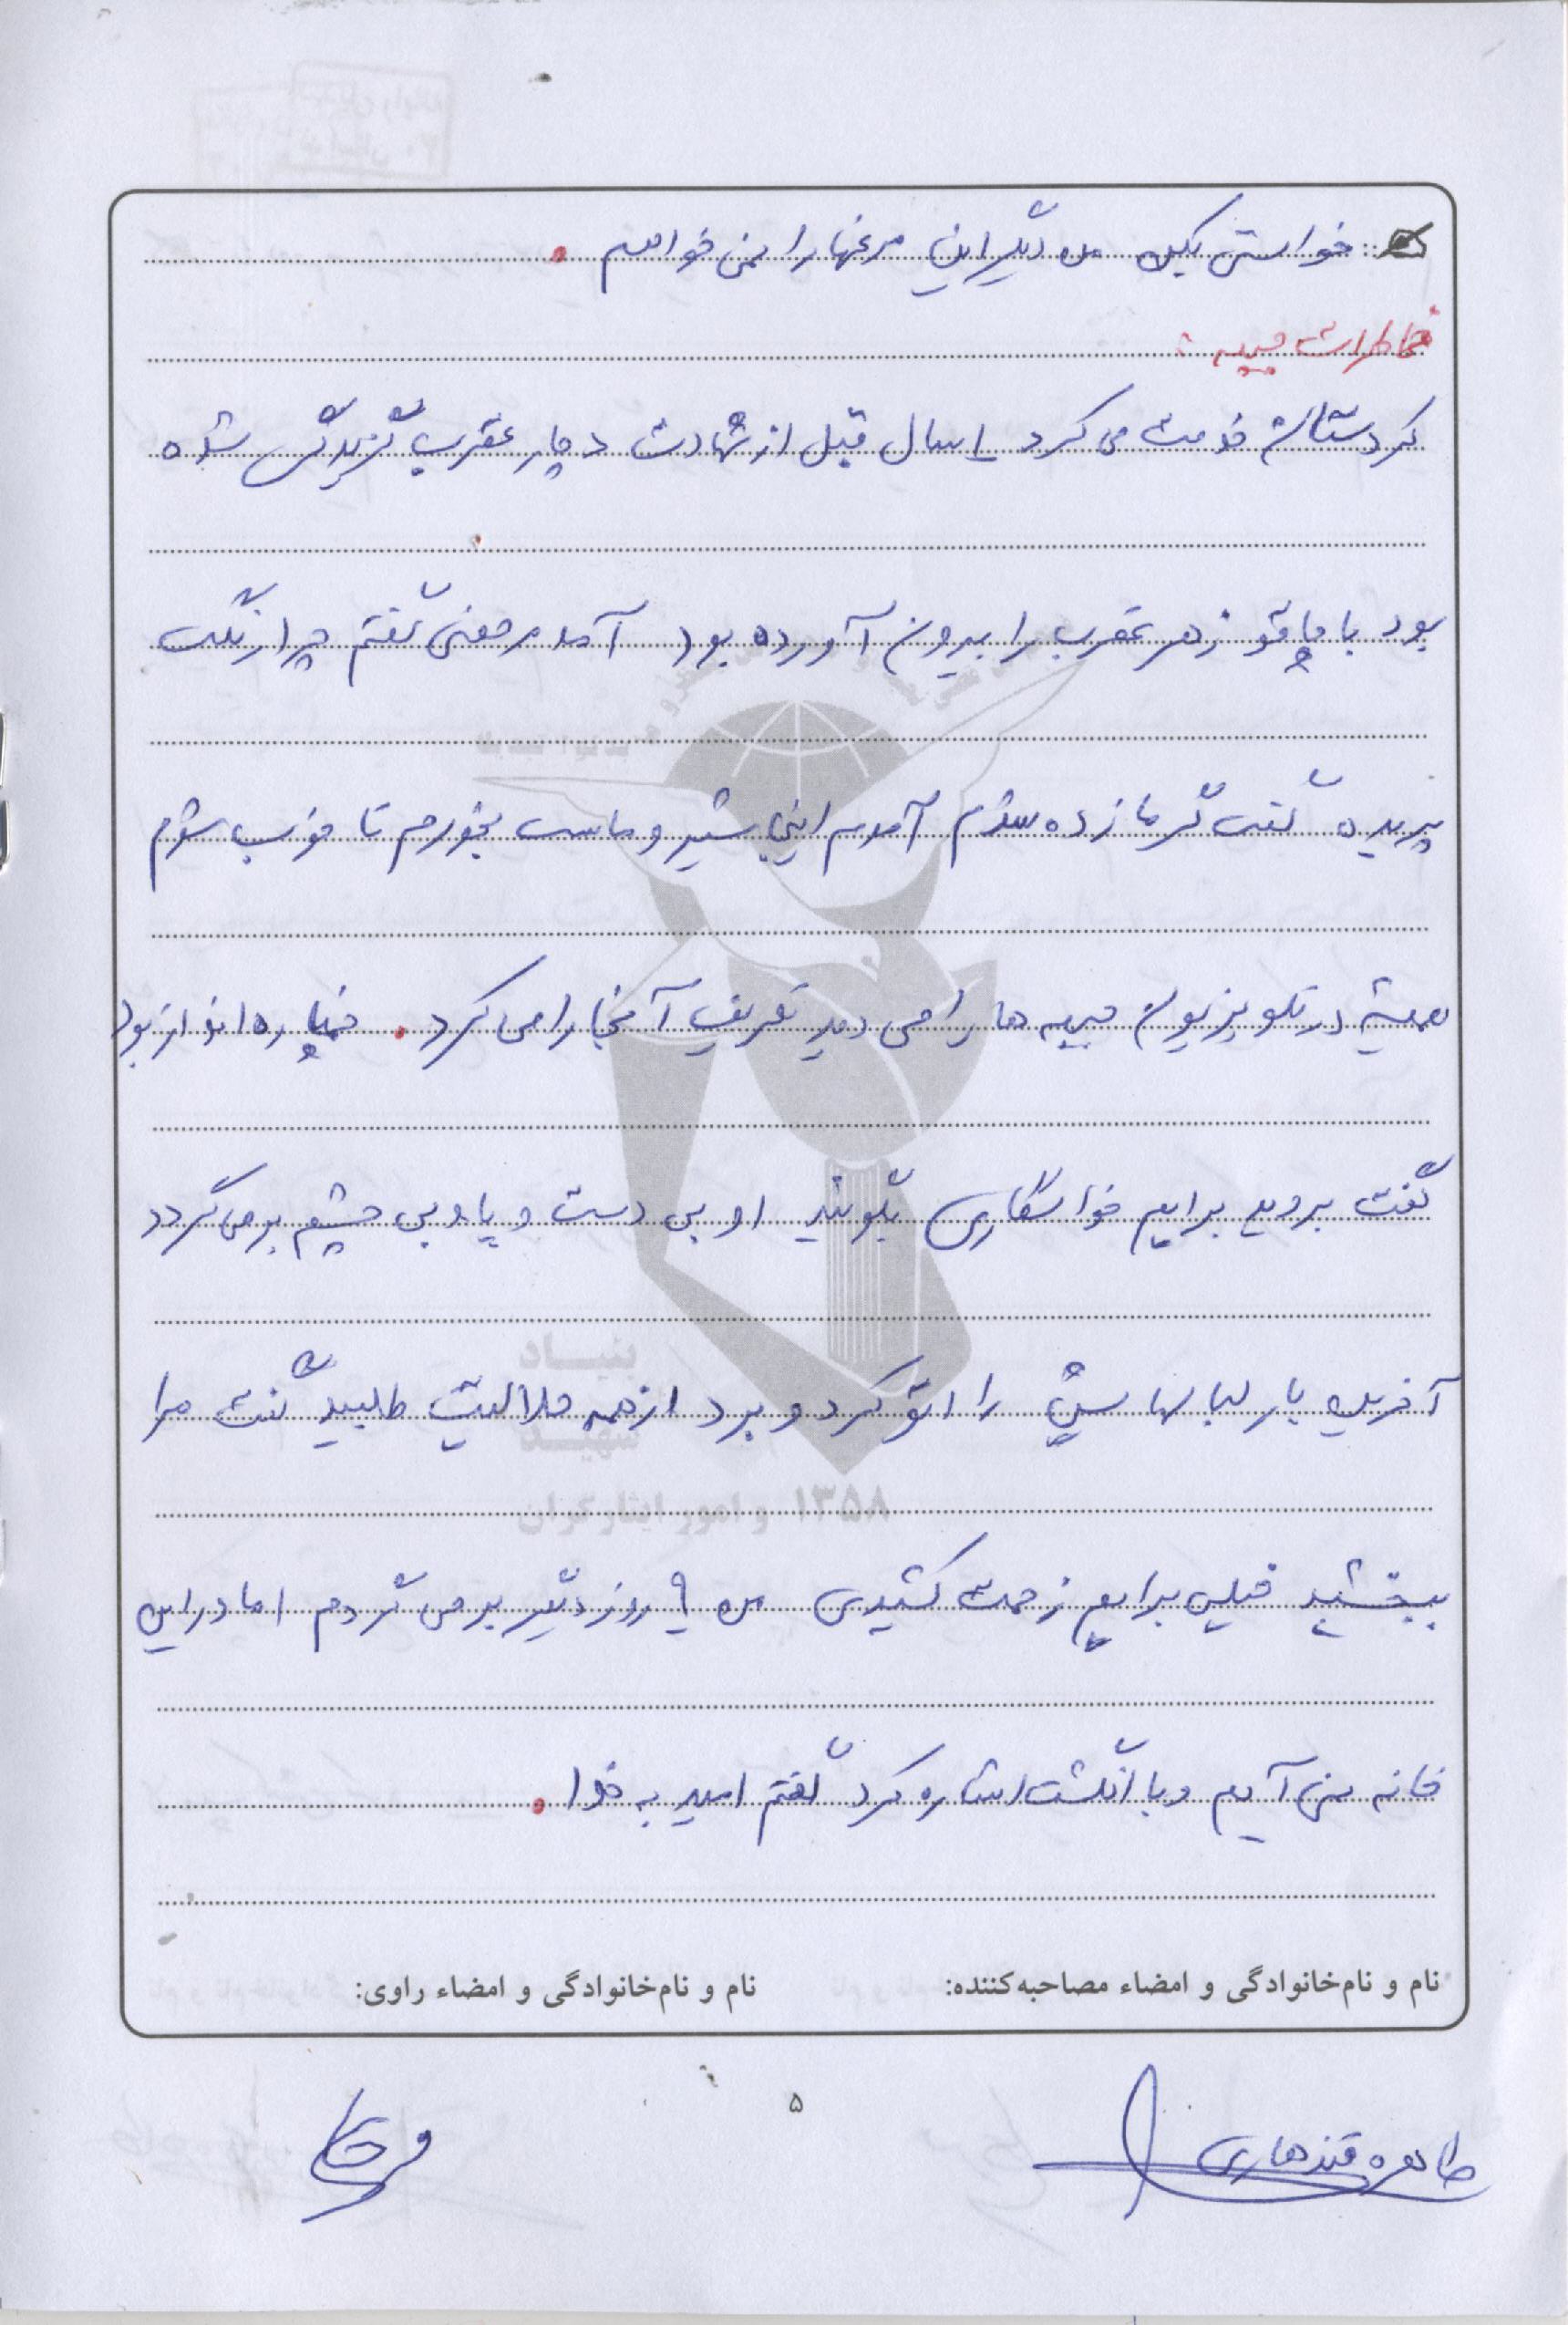 خواستی بکن من دیگر این مرغها را نمی خواهم .
خاطرات جبهه :
کردستان خدمت می کرد ۱ سال قبل از شهادت دچار عقرب گزیدگی شده
بود با چاقو زهر عقرب را بیرون آورده بود آمد مرخصی گفتم چرا رنگت
پریده گفت گرما زده شدم آمدم اینجا شیر و ماست بخورم تا خوب شوم
همیشه در تلویزیون جبهه ها را می دید تعریف آنجا را می کرد . خمپاره انداز بود
گفت بروید برایم خواستگاری بگویید او بی دست و پا و بی چشم برمی گردد
آخرین بار لباسهایش را اتو کرد و برد از همه حلالیت طلبید گفت مرا
ببخشید خیلی برایم زحمت کشیدی من ۹ روز دیگر برمی گردم اما در این
خانه نمی آیم و با انگشت اشاره کرد گفتم امید به خدا .
بنیاد
شهید
و امور ایثارگران
۱۳۵۸
نام و نام‌خانوادگی و امضاء مصاحبه‌کننده:
نام و نام‌خانوادگی و امضاء راوی:
۵
طاهره قندهاری